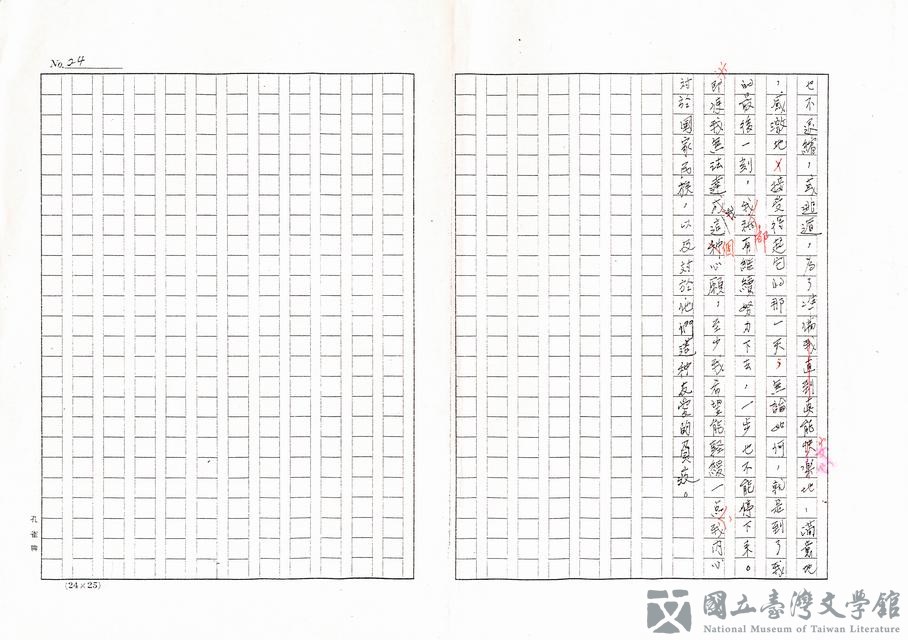 No. 24
也不退縮，或逃遁，為了準備我直到真能快樂地，滿意地
，感激地接受得起它的那一天；無論如何，就是到了我
的最後一刻，我都再繼續努力下去，一步也不能停下來。
即使我無法達成我這個心願，至少我希望能輕緩一点我內心
對於國家民族，以及對於他們這种友愛的負疚。
(24×25)
國立臺灣文學館
National Museum of Taiwan Literature